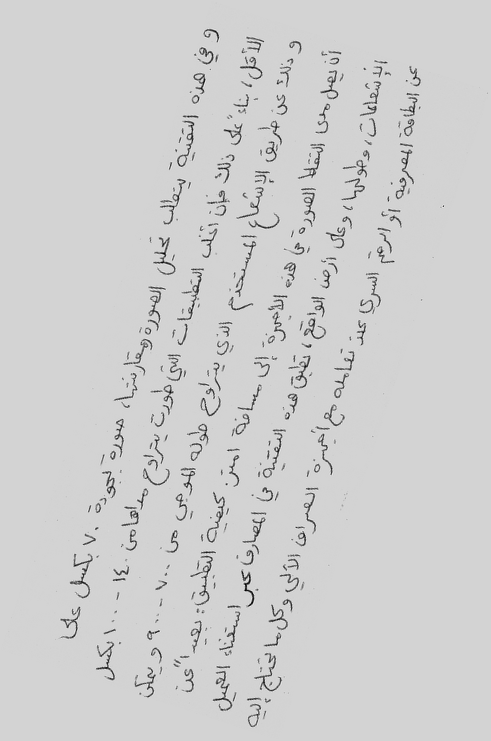 وفي هذه التقنية يتطلب تحليل الصورة ومقارنتها، صورة بجودة ٧٠ بكسل على
الأقل، بناءً على ذلك فإن أغلب التطبيقات التي طورت يتراوح مداها من ١٤٠ - ١٠٠ بكسل
وذلك عن طريق الإشعاع المستخدم الذي يتراوح طوله الموجي من ٧٠٠ - ٩٠٠ ويمكن
أن يصل مدى التقاط الصورة في هذه الأجهزة إلى مسافة ١ متر كيفية التطبيق: بعيداً عن
الإشعاعات، وطولها، وعلى أرض الواقع، تطبق هذه التقنية في المصارف عبر استغناء العميل
عن البطاقة المصرفية أو الرقم السري عند تعامله مع أجهزة الصراف الآلي وكل ما تحتاج إليه